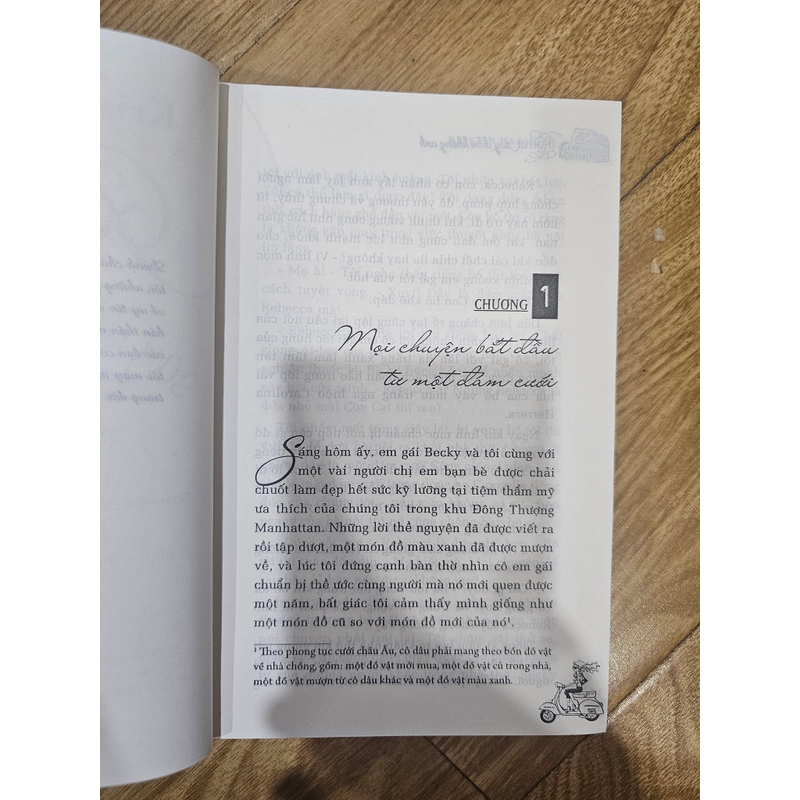 CHƯƠNG 1
Mọi chuyện bắt đầu
từ một đám cưới
Sáng hôm ấy, em gái Becky và tôi cùng với
một vài người chị em bạn bè được chải
chuốt làm đẹp hết sức kỹ lưỡng tại tiệm thẩm mỹ
ưa thích của chúng tôi trong khu Đông Thượng
Manhattan. Những lời thề nguyện đã được viết ra
rồi tập dượt, một món đồ màu xanh đã được mượn
về, và lúc tôi đứng cạnh bàn thờ nhìn cô em gái
chuẩn bị thề ước cùng người mà nó mới quen được
một năm, bất giác tôi cảm thấy mình giống như
một món đồ cũ so với món đồ mới của nó¹.
¹ Theo phong tục cưới châu Âu, cô dâu phải mang theo bốn đồ vật
về nhà chồng, gồm: một đồ vật mới mua, một đồ vật cũ trong nhà,
một đồ vật mượn từ cô dâu khác và một đồ vật màu xanh.